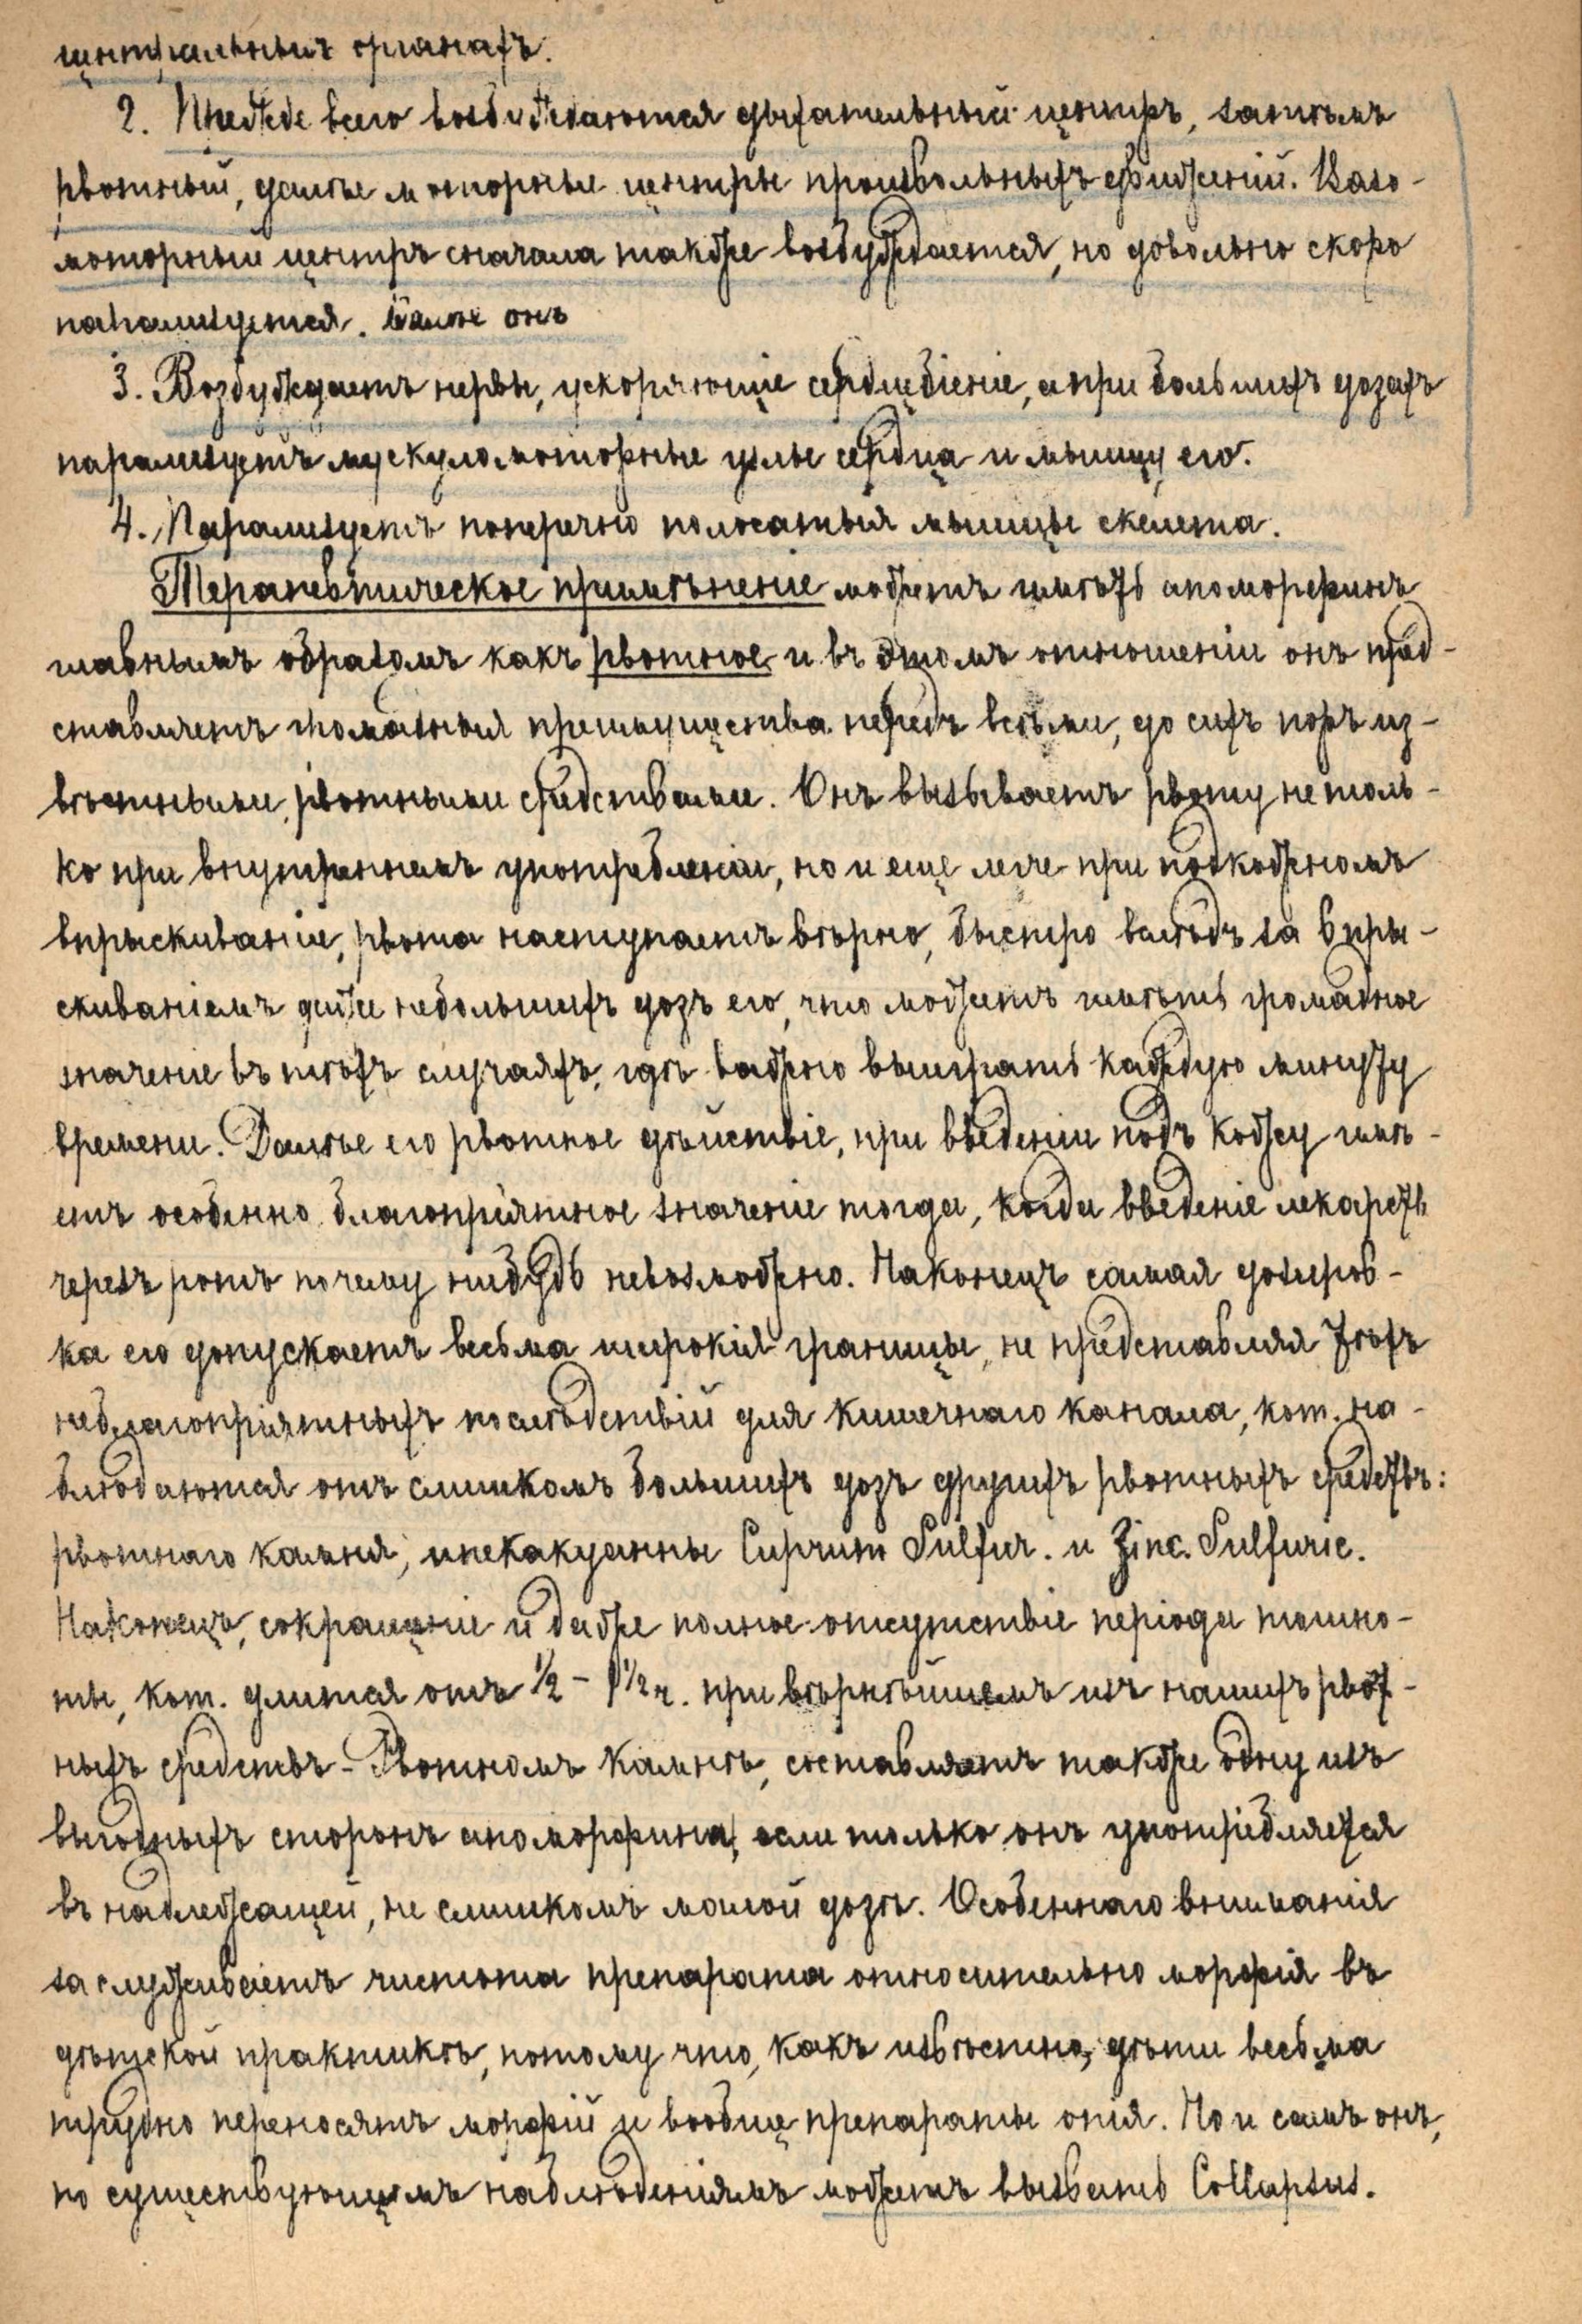 центральныхъ органахъ.
2. Прежде всего возбуждаются дыхательный центръ, затѣмъ
рвотный, далѣе моторные центры произвольныхъ движеній. Вазо-
моторный центръ сначала также возбуждается, но довольно скоро
парализуется. Далѣе онъ
3. Возбуждаетъ нервы, ускоряющіе сердцебіеніе, а при большихъ дозахъ
парализуетъ мускуломоторные узлы сердца и мышцу его.
4. Парализуетъ поперечно полосатыя мышцы скелета.
Терапевтическое примѣненіе можетъ имѣть апоморфинъ
главнымъ образомъ какъ рвотное и въ этомъ отношеніи онъ пред-
ставляетъ громадныя преимущества передъ всѣми, до сихъ поръ из-
вѣстными, рвотными средствами. Онъ вызываетъ рвоту не толь-
ко при внутреннемъ употребленіи, но и еще легче при подкожномъ
впрыскиваніи, рвота наступаетъ вѣрно, быстро вслѣдъ за впры-
скиваніемъ даже небольшихъ дозъ его, что можетъ имѣть громадное
значеніе въ тѣхъ случаяхъ, гдѣ важно выиграть каждую минуту
времени. Далѣе его рвотное дѣйствіе, при введеніи подъ кожу имѣ-
етъ особенно благопріятное значеніе тогда, когда введеніе лекарствъ
черезъ ротъ почему нибудь невозможно. Наконецъ самая дозиров-
ка его допускаетъ весьма широкія границы, не представляя тѣхъ
неблагопріятныхъ послѣдствій для кишечнаго канала, кот. на-
блюдаются отъ слишкомъ большихъ дозъ другихъ рвотныхъ средствъ:
рвотнаго камня, ипекакуанны Cuprum Sulfur. и Zinc. Sulfuric.
Наконецъ, сокращеніе и даже полное отсутствіе періода тошно-
ты, кот. длится отъ ½ – 1½ ч. при вѣрнѣйшемъ изъ нашихъ рвот-
ныхъ средствъ - Рвотномъ камнѣ, составляетъ также одну изъ
выгодныхъ сторонъ апоморфина, если только онъ употребляется
въ надлежащей, не слишкомъ малой дозѣ. Особеннаго вниманія
заслуживаетъ чистота препарата относительно морфія въ
дѣтской практикѣ, потому что, какъ извѣстно, дѣти весьма
трудно переносятъ морфій и вообще препараты опія. Но и самъ онъ,
по существующимъ наблюденіямъ можетъ вызвать Collapsus.